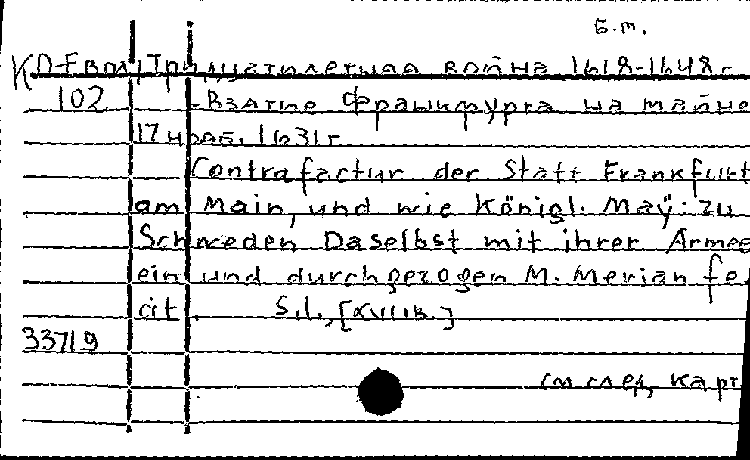 Б.м.
КО-Евол Тридцатилетняя война 1618-1648 г
102 -Взятие Франкфурта на Майне
17 нояб. 1631 г
Contrafactur der Statt Frankfurt
am Main, und wie Königl. Maÿ: zu
Schweden Daselbst mit ihrer Armee
ein und durchgezogen M. Merian fe
cit. S.l., [XVII в.]
33719
см след. карт